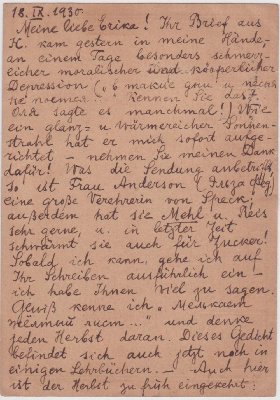 18. IX. 1930.
Meine liebe Erika! Ihr Brief aus
K. kam gestern in meine Hände -
an einem Tage besonders schmerz-
licher moralischer und körperlicher
Depression
" Kennen Sie das?
sagte es manchmal!) Wie
ein glanz- u wärmereicher Sonnen-
strahl hat er mich sofort aufge-
richtet – nehmen Sie meinen Dank
dafür! Was die Sendung anbetrifft,
so ist Frau Anderson
eine große Verehrerin von Speck,
außerdem hat sie Mehl u. Reis
sehr gerne, u. in letzter Zeit
schwärmt sie auch für Zucker!
Sobald ich kann, gehe ich auf
Ihr Schreiben ausführlich ein –
ich habe Ihnen viel zu sagen.
Gewiß kenne ich „Мелькает
жёлтый лист..." und denke
jeden Herbst daran. Dieses Gedicht
befindet sich auch jetzt noch in
einigen Lehrbüchern. – Auch hier
ist der Herbst zu früh eingekehrt: